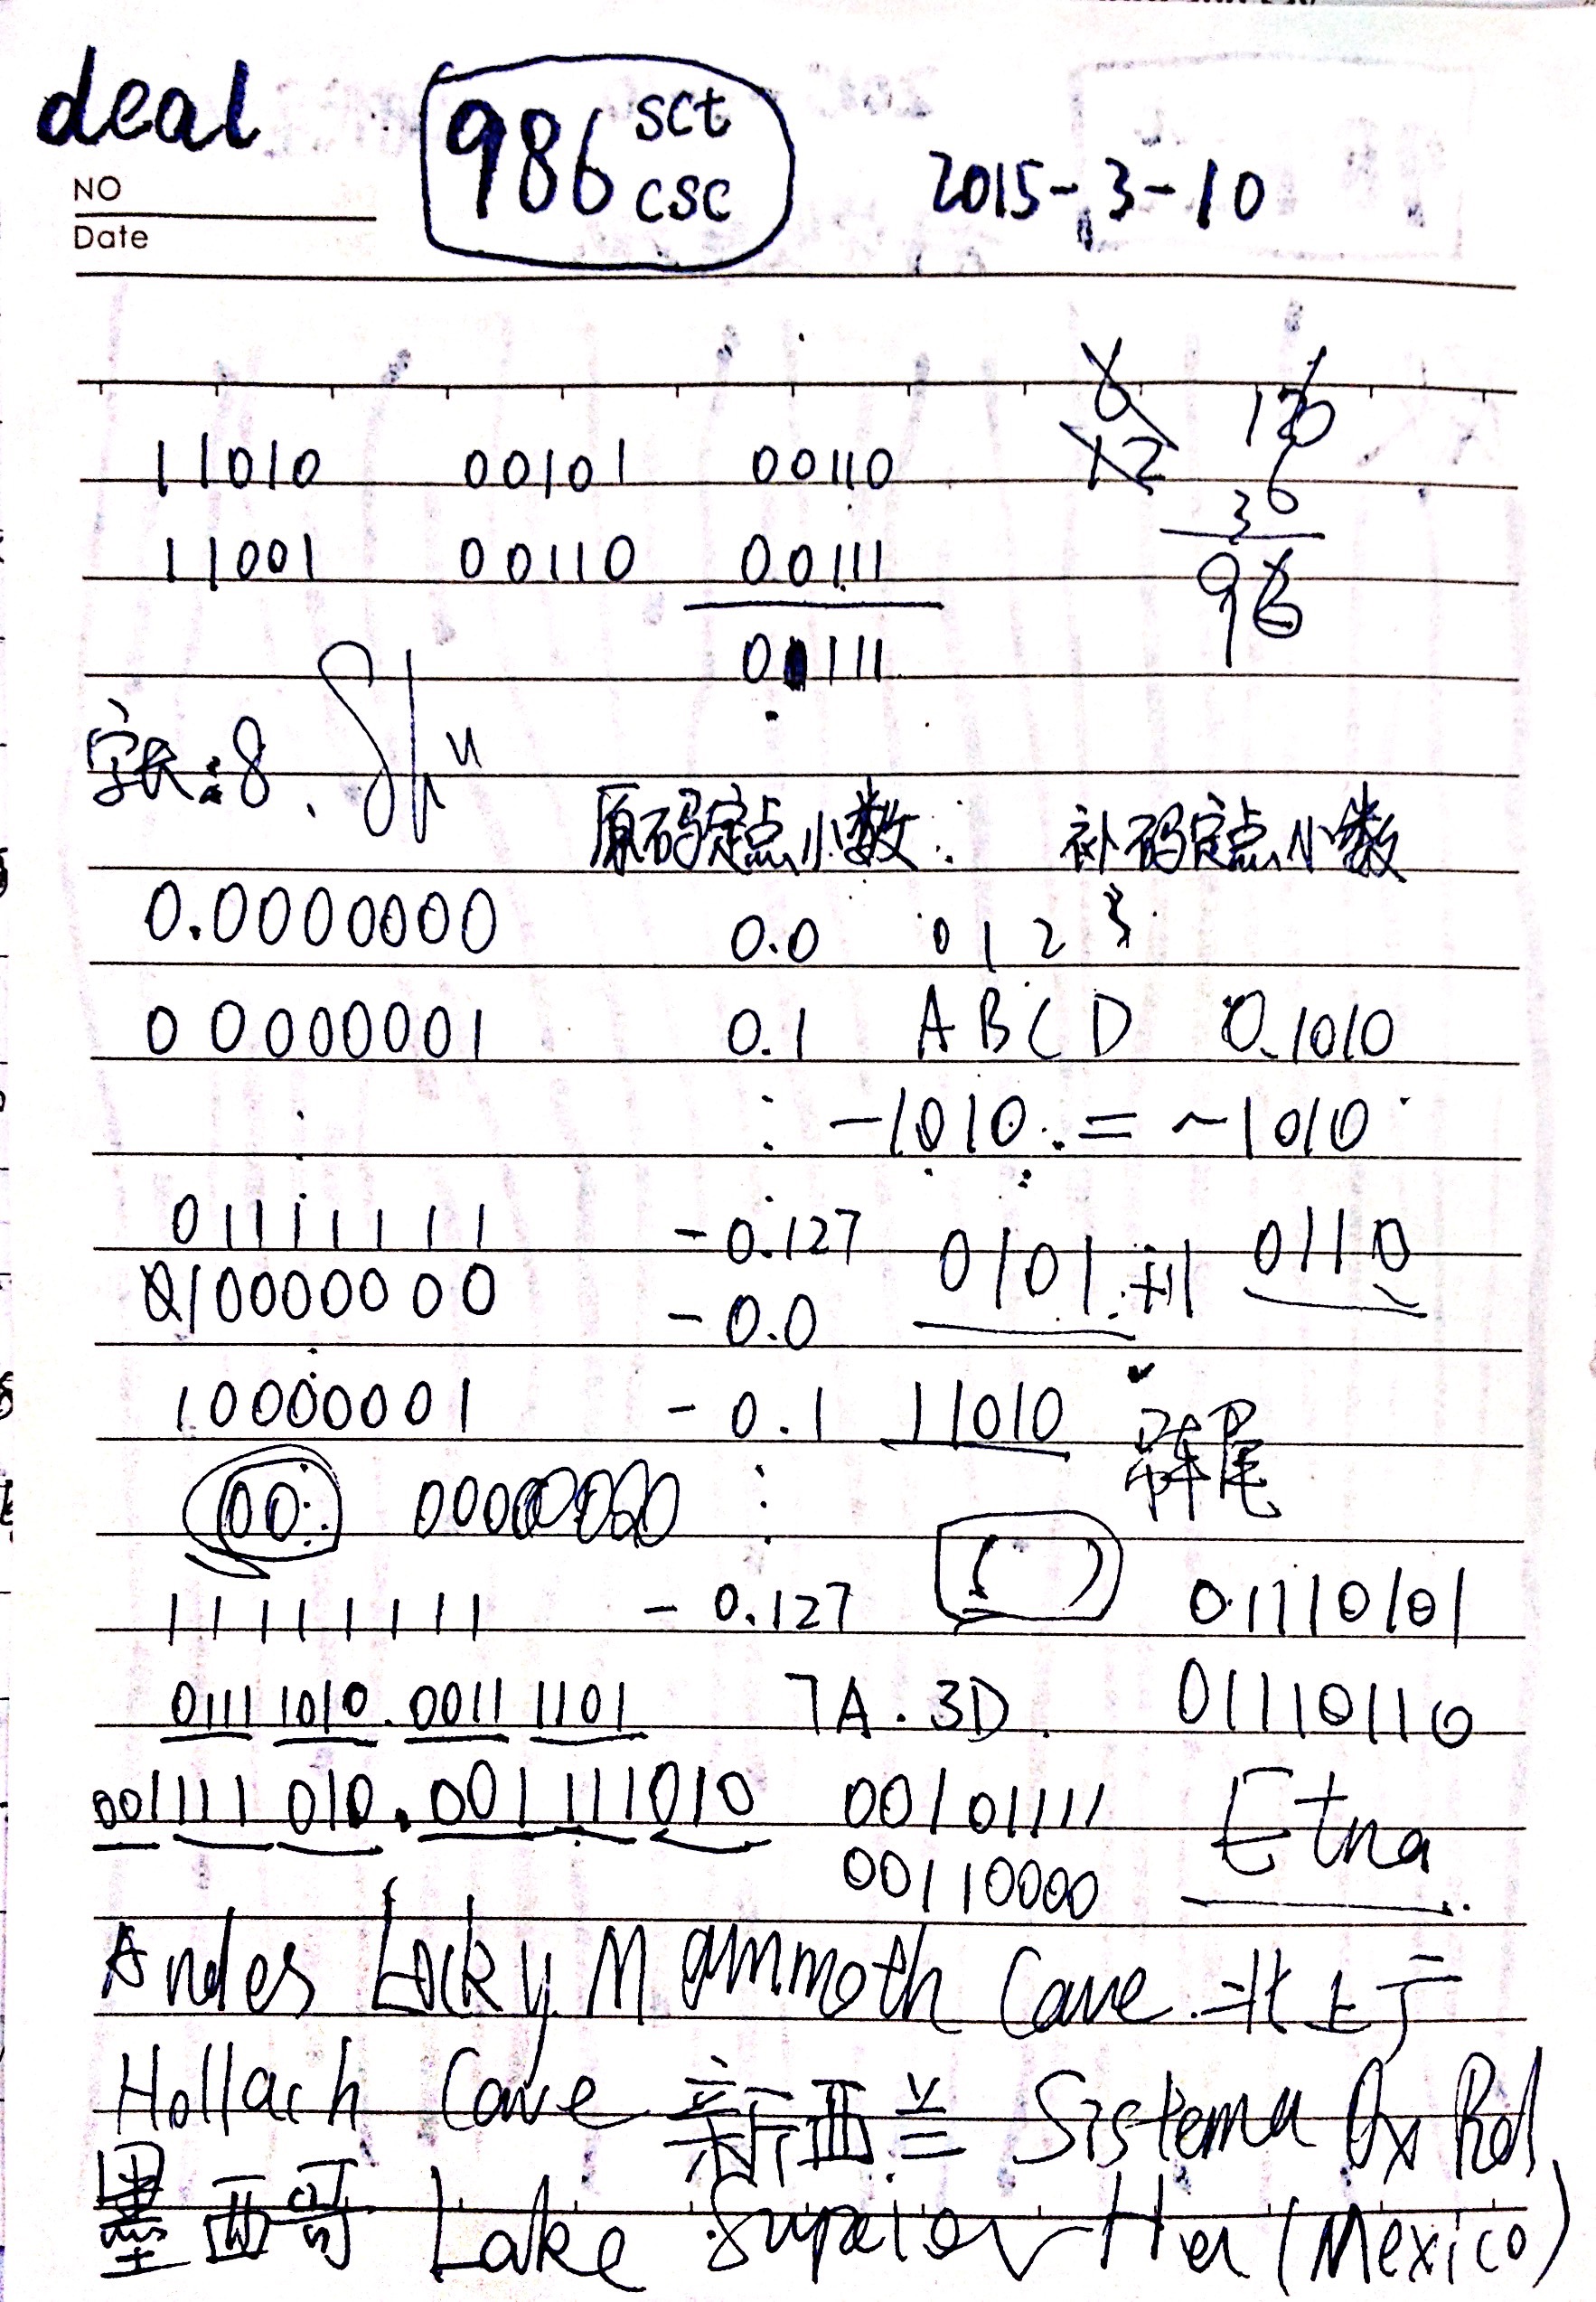 deal 986 sct csc 2015-3-10
NO
Date
11010 00101 00110 126
11001 00110 00111 36
00111 96
字长:8.
原码定点小数: 补码定点小数
0.0000000 0.0 0 1 2 3
00000001 0.1 A B C D 0.1010
-1010 = ~1010
01111111 -0.127 0101 +1 0110
10000000 -0.0
10000001 -0.1 11010
00
11111111 -0.127 ( ) 01110101
0111 1010.0011 1101 7A.3D 01110110
001111010.001111010 00101111 Etna
00110000
Andes Locky Mammoth Cave
Hollach Cave 新西兰 Sistema Ox Bel
墨西哥 Lake Superior Her (Mexico)